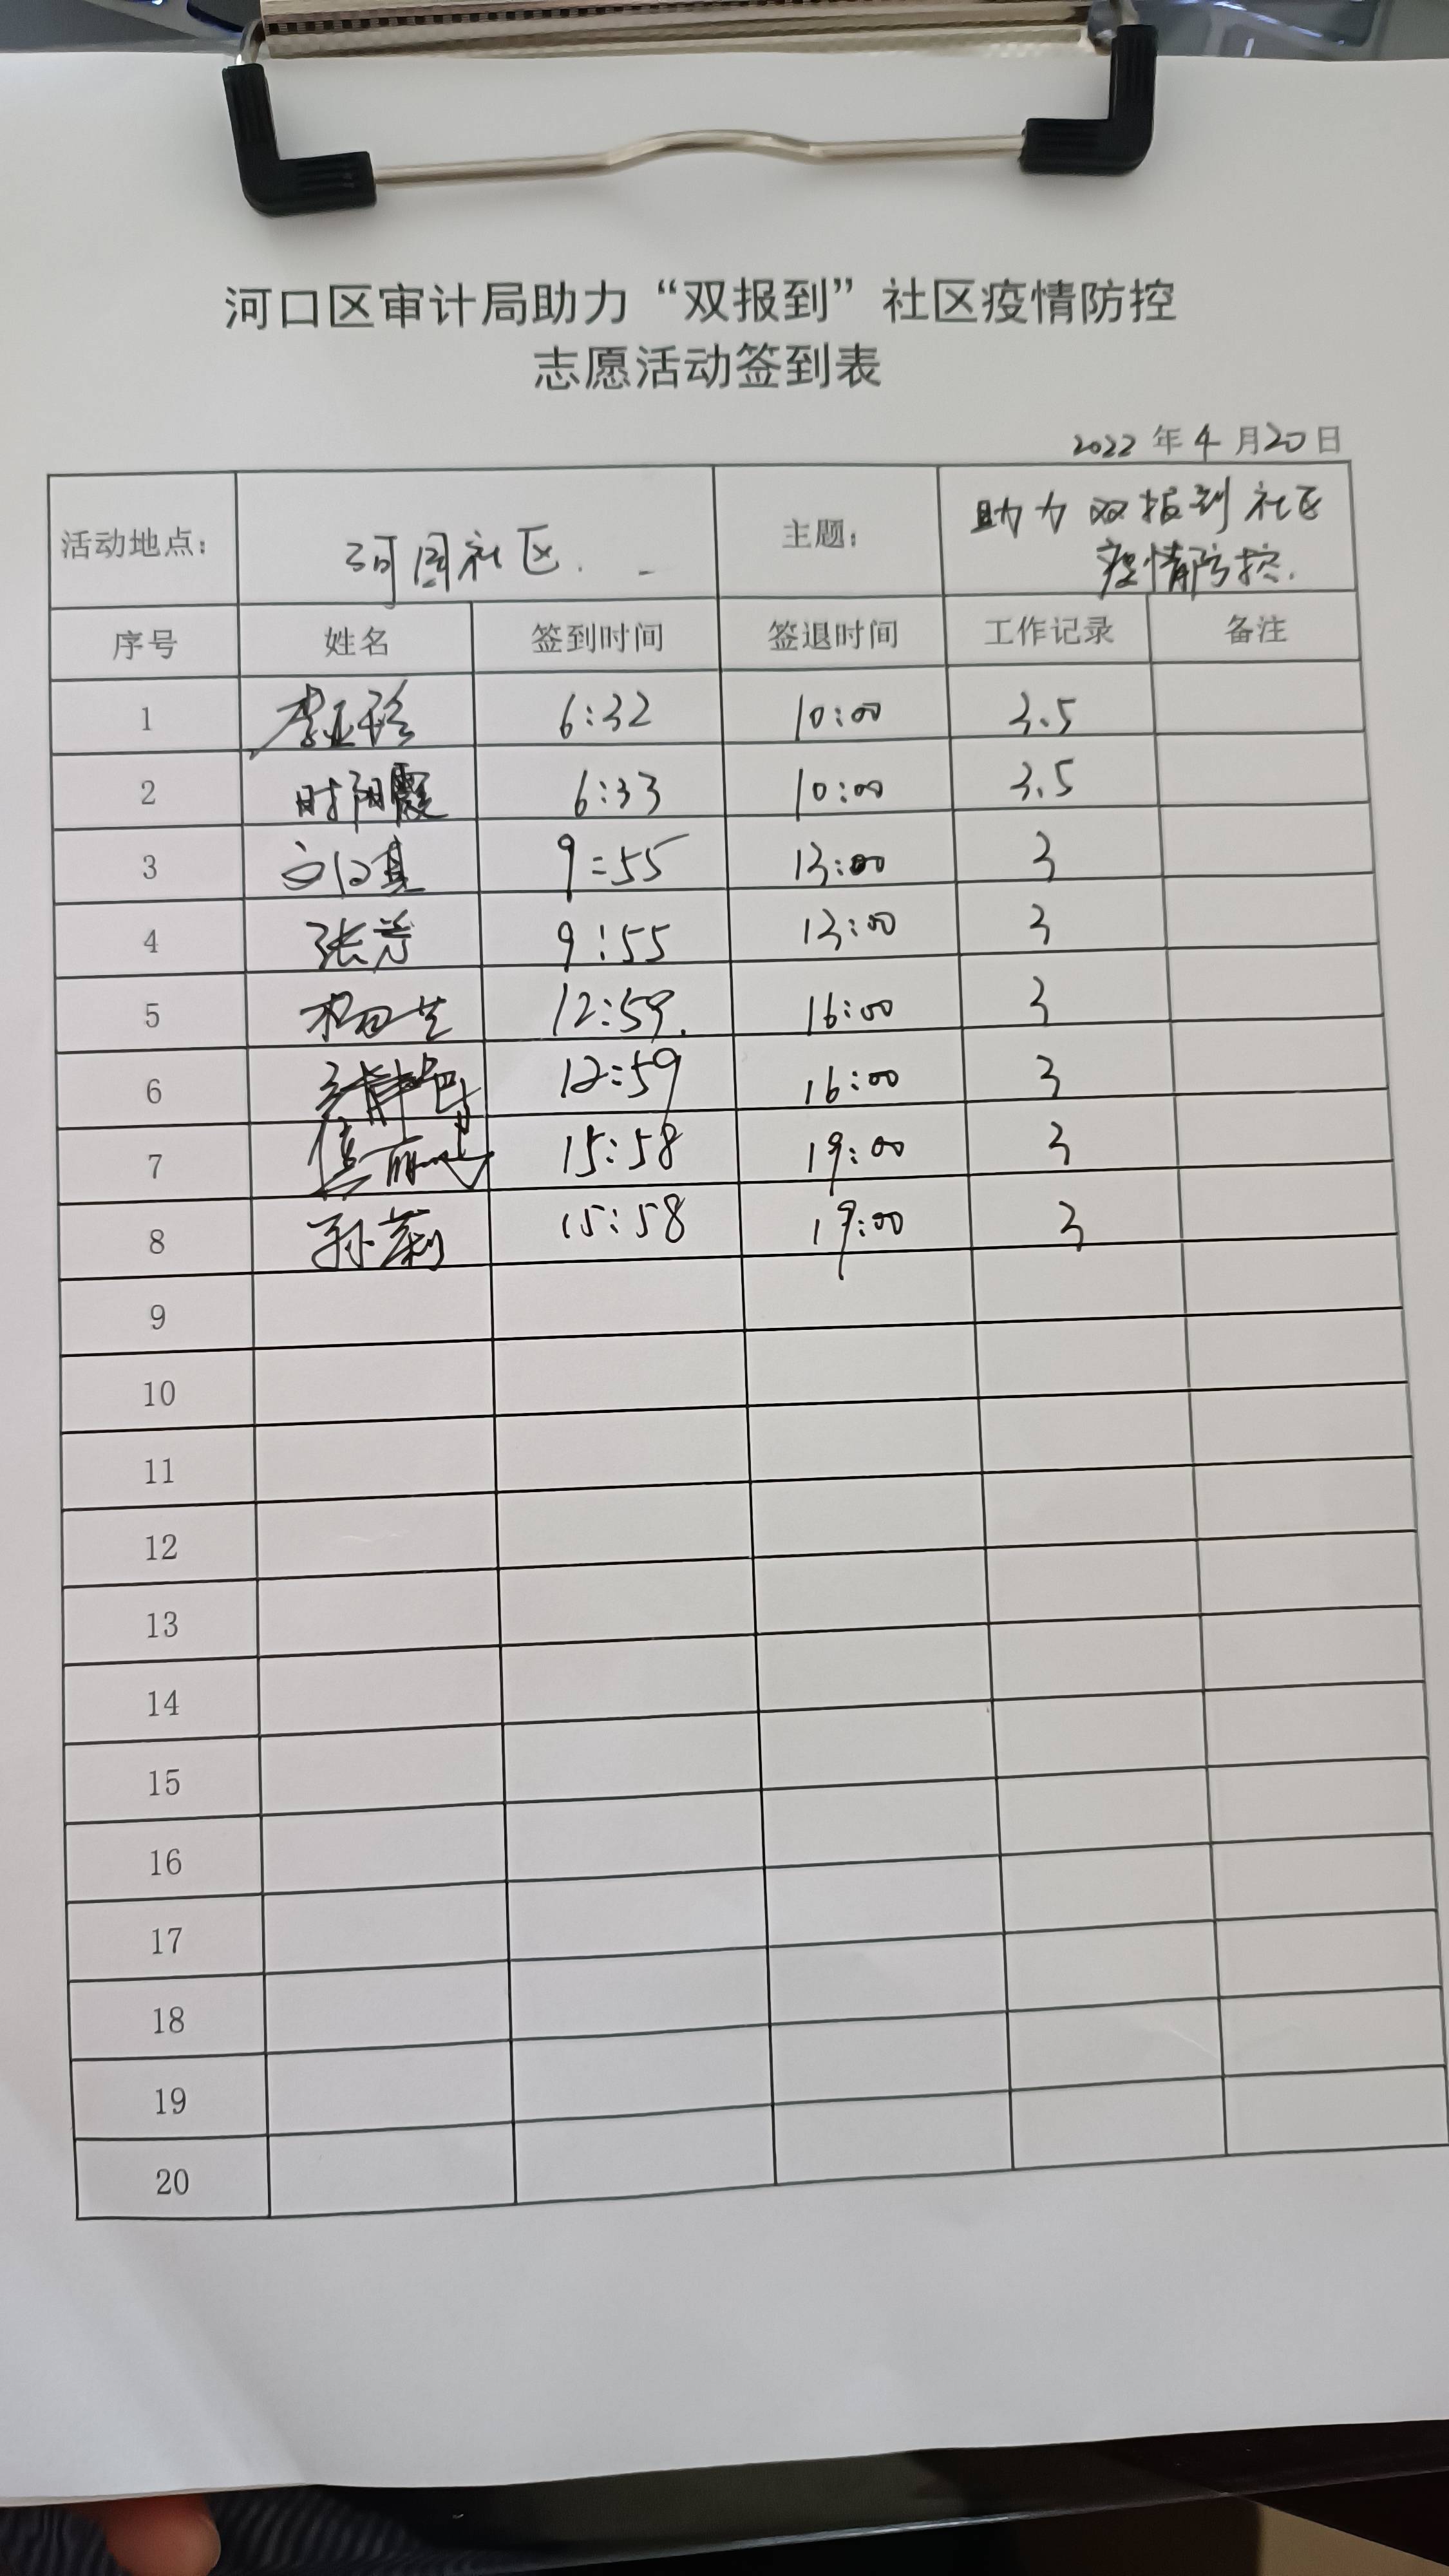 河口区审计局助力“双报到”社区疫情防控
志愿活动签到表
2022 年 4 月 20 日
活动地点: 河园社区. 主题: 助力双报到社区
疫情防控.
序号 姓名 签到时间 签退时间 工作记录 备注
1 李亚珍 6:32 10:00 3.5
2 时阳霞 6:33 10:00 3.5
3 9:55 13:00 3
4 张芳 9:55 13:00 3
5 12:59. 16:00 3
6 12:59 16:00 3
7 15:58 19:00 3
8 孙莉 15:58 19:00 3
9
10
11
12
13
14
15
16
17
18
19
20